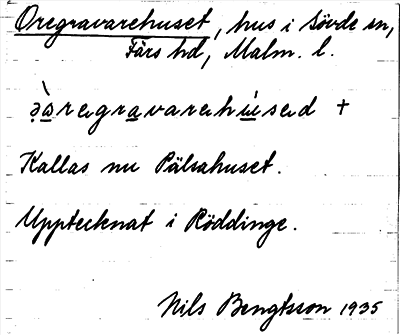 Oregravarehuset, hus i Sövde sn,
Färs hd, Malm. l.
Kallas nu Pälsahuset.
Upptecknat i Röddinge.
Nils Bengtsson 1935